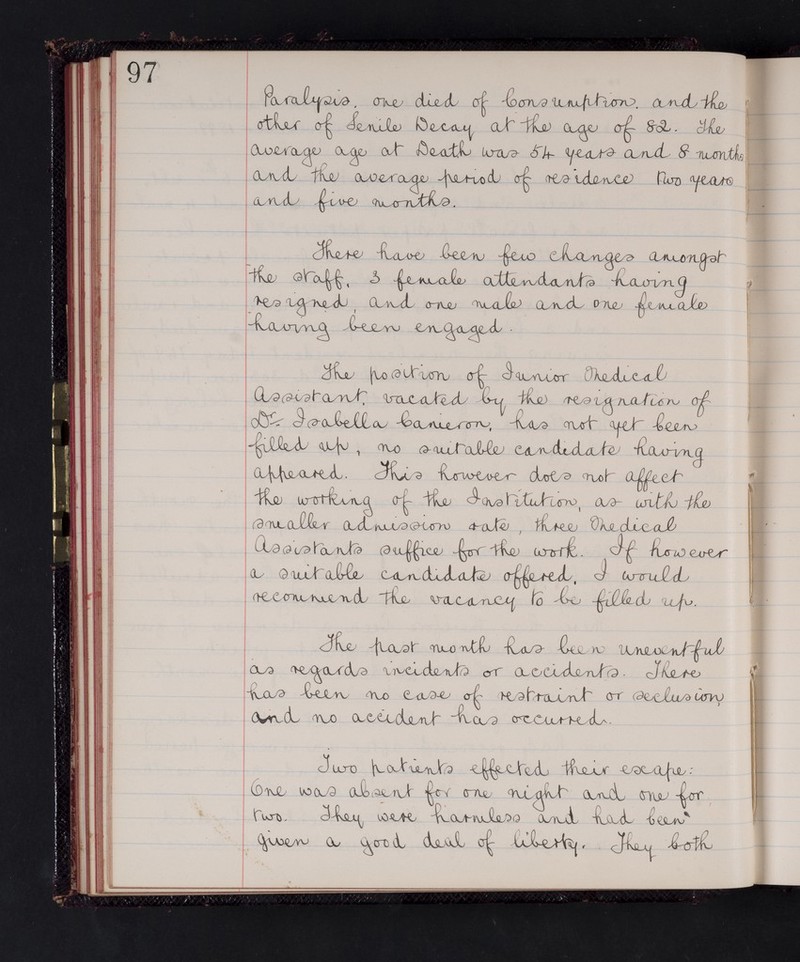 97
Paralysis, one died of Consumption, and the
other of Senile Decay at the age of 82. The
average age at Death was 54 years and 8 months
and the average period of residence Two years
and five months.
There have been few changes amongst
the staff, 3 female attendants having
resigned, and one male and one female
having been engaged.
The position of Junior Medical
Assistant, vacated by the resignation of
Dr. Isabella Cameron, has not yet been
filled up, no suitable candidate having
appeared. This however does not affect
the working of the Institution, as with the
smaller admission rate, three Medical
Assistants suffice for the work. If however
a suitable candidate offered, I would
recommend the vacancy to be filled up.
The past month has been uneventful
as regards incidents or accidents. There
has been no case of restraint or seclusion,
and no accident has occurred.
Two patients effected their escape:
One was absent for one night and one for
two. They were harmless and had been
given a good deal of liberty. They both